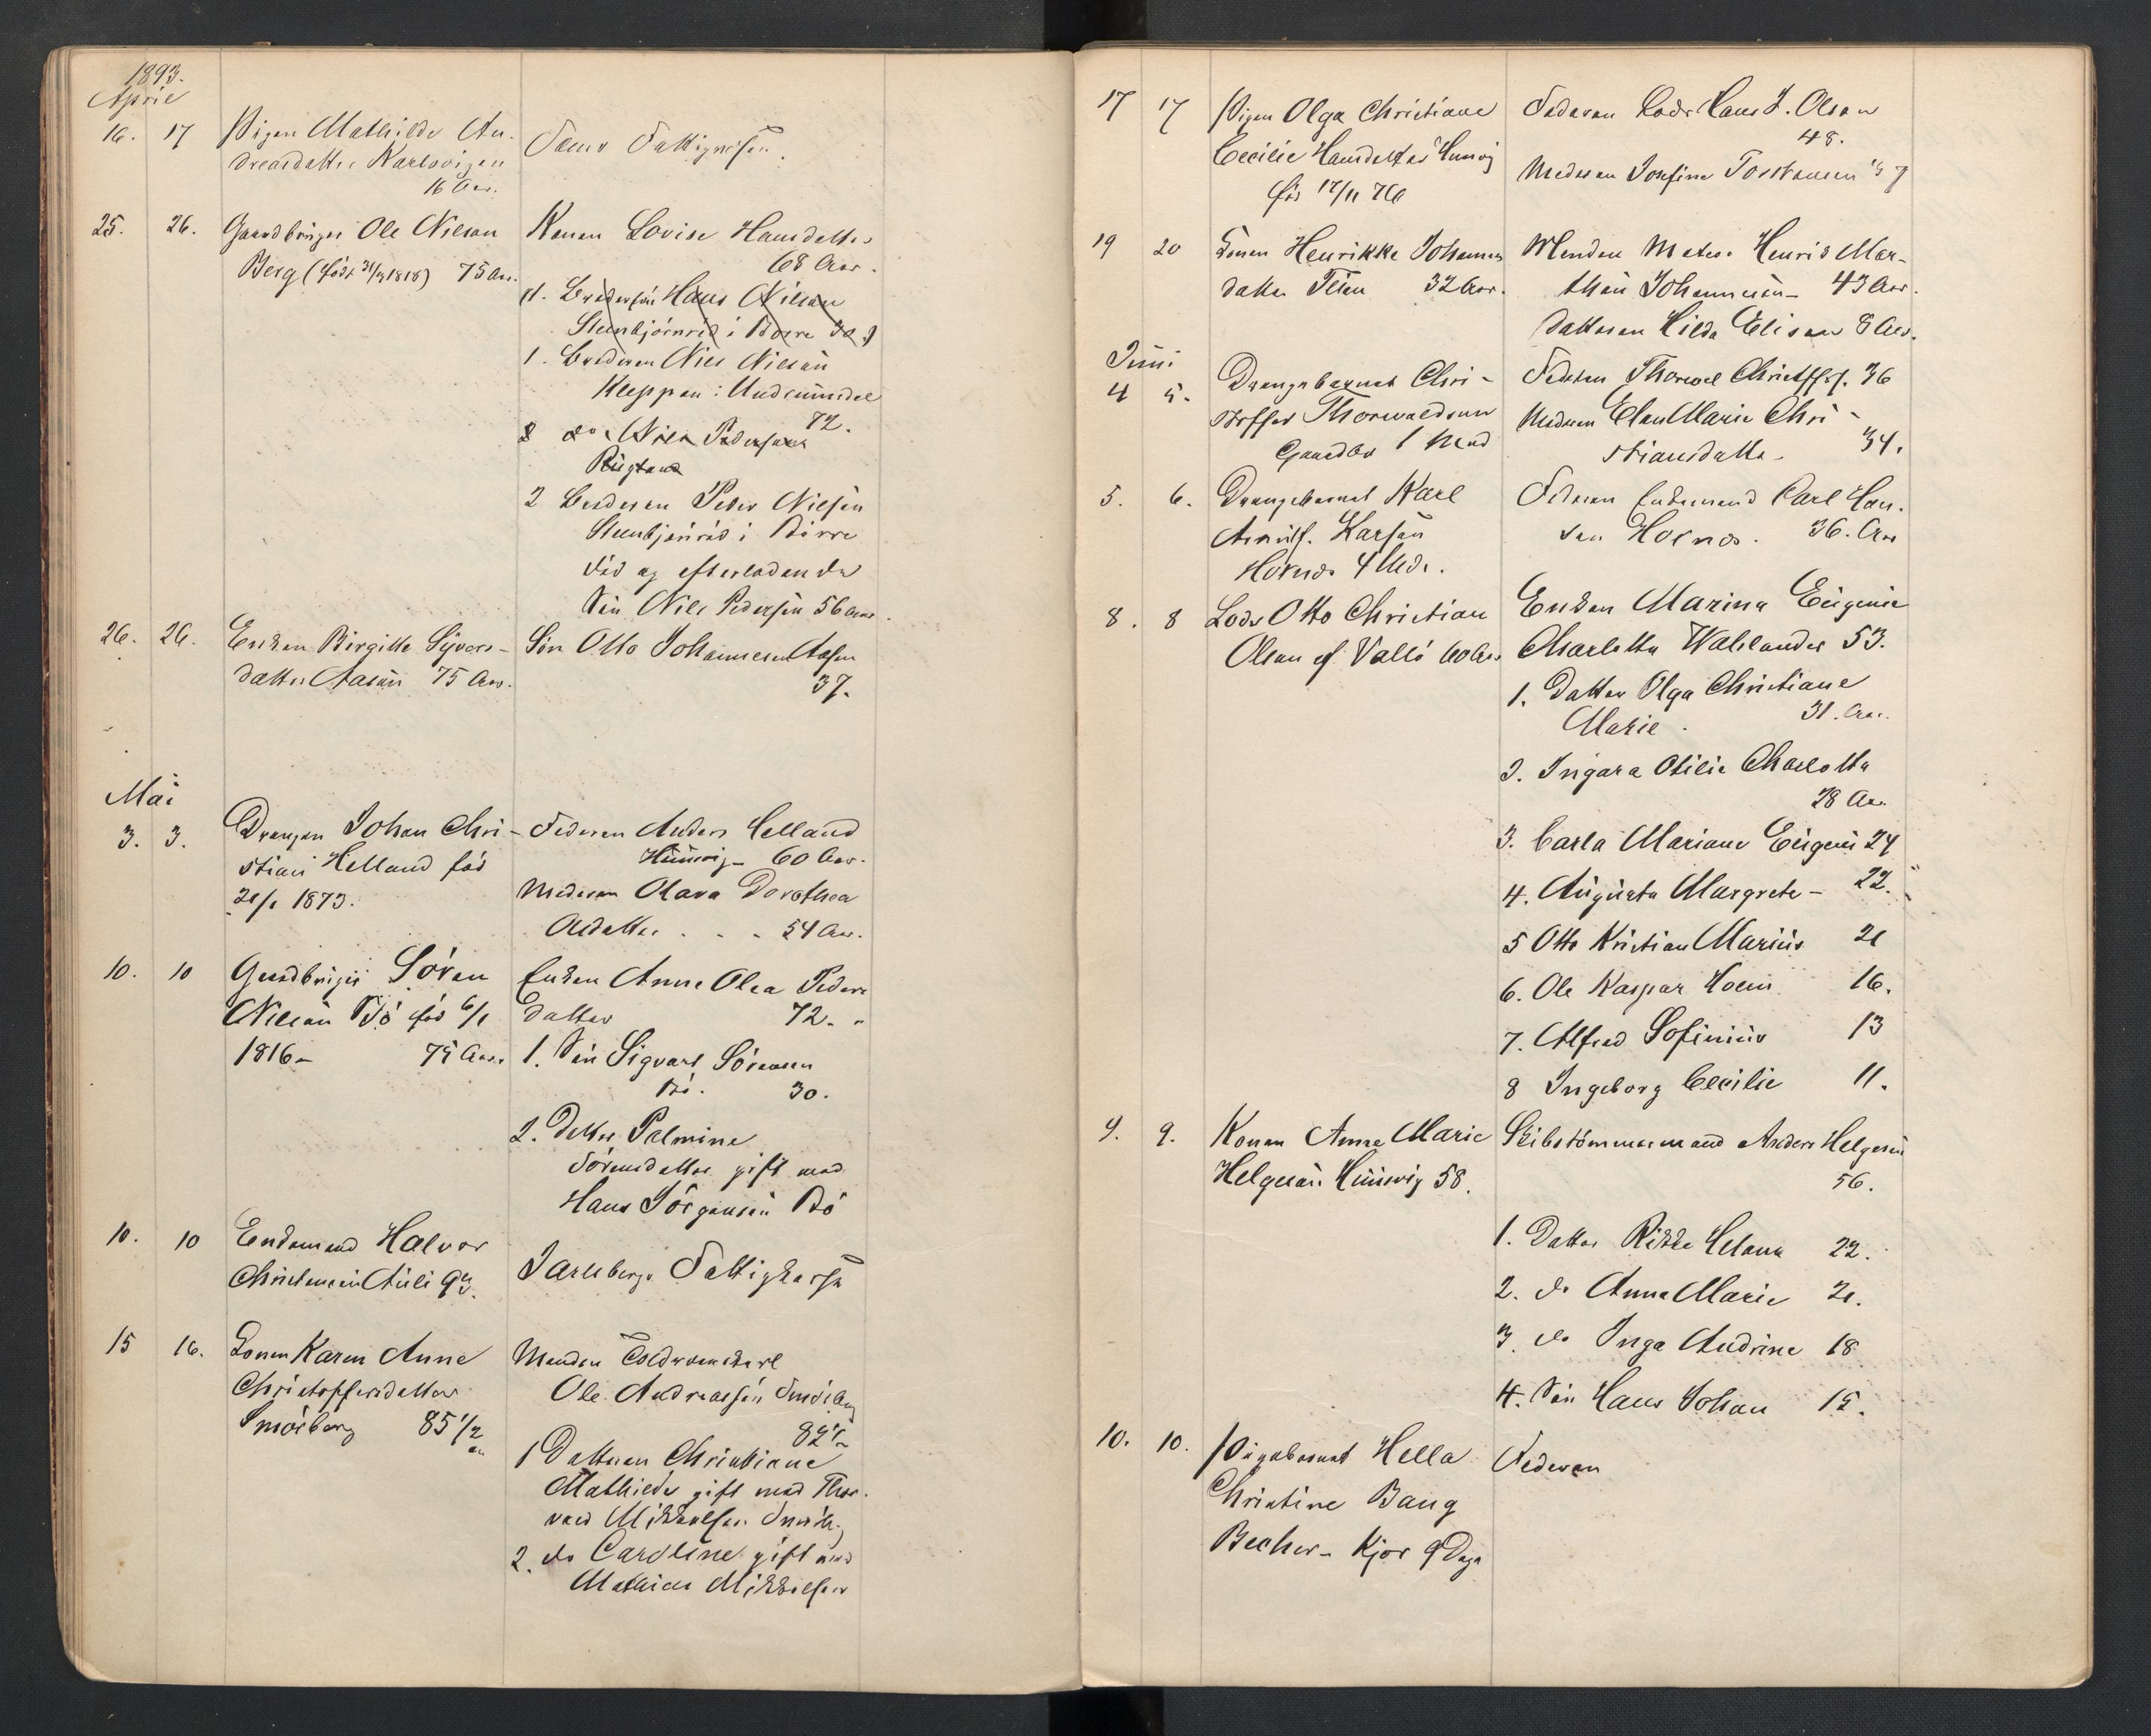 1893.
April
16. 17 Pigen Mathilde An-
dreasdatter Karlsvigen
16 Aar.
Sems Fattigvæsen.
25. 26. Gaardbruger Ole Nilsen
Berg (født 31/3 1818) 75 Aar.
Konen Lovise Hansdatter
68 Aar.
1. Brodersøn Hans Nilsen
Steenbjørnrød i Borre 30
1. Broderen Niels Nielsen
Kleppan: Undrumsdal
72.
2 do Niels Pedersens
2 Broderen Peder Nilsen
Steenbjørnrød i Borre
død og efterladende
Søn Nils Pedersen 56 Aar.
26. 26. Enken Birgitte Syvers-
datter Aasen 75 Aar.
Søn Otto Johannesen Aasen
37.
Mai
3. 3. Drengen Johan Chri-
stian Helland fød
1873.
Faderen Anders Helland
Husvig 60 Aar.
Moderen Olava Dorothea
Olsdatter . . . 54 Aar.
10. 10 Gaardbruger Søren
Nilsen Bø fød 6/1
1816 - 75 Aar.
Enken Anne Olea Peders
datter 72.
1. Søn Sigvart Sørensen
Bø. 30.
2. Datter Palmine
Sørensdatter gift med
Hans Jørgensen Bø
10. 10 Enkemand Halvor
Christensen Auli
Jarlsbergs Fattigkasse
15 16. Konen Karen Anne
Christoffersdatter
Smørberg 85 1/2
Manden
Ole Andreassen Smørberg
82
1 Datteren Christiane
Mathilde gift med Thor-
vald Mikkelsen Smørb.
2. do Caroline gift med
Mathias Mikkelsen
17 17 Pigen Olga Christiane
Cecilie Hansdatter Husvig
fød 17/11 76
Faderen Lods Hans J. Olsen
48.
Moderen Josefine Torstensen 47
19 20 Konen Henrikke Johannes
datter 32 Aar.
Manden Matros Henrik Mar-
thin Johannesen - 43 Aar.
Datteren Hilda Elisen 8 Aar.
Juni
4 5. Drengebarnet Chri-
stoffer Thorvaldsen
1 Mnd
Faderen Thorval Christoffers. 36
Moderen Elen Marie Chri-
stiansdatter. 34.
5. 6. Drengebarnet Karl
Arnulf. Karlsen
Hornes 4 Mdr.
Faderen Enkemand Carl Han-
sen Hornes. 36. Aar
8. 8 Lods Otto Christian
Olsen af Vallø 60 Aar
Enken Marina Eugenie
Charlotta Wahlander 53.
1. Datter Olga Christiane
Marie. 31. Aar.
2. Ingara Otilie Charlotta
28 Aar
3. Carla Mariane Eugeni 24
4. Augusta Margrete - 22.
5 Otto Kristian Marius 21
6. Ole Kaspar 16.
7. Alfred Sofinius 13
8 Ingeborg Cecilie 11.
9. 9. Konen Anne Marie
Helgesen Husvig 58.
Skibstømmermand Anders Helgesen
56.
1. Datter Rikke Helena 22.
2. do Anna Marie 21.
3. do Inga Andrine 18
4. Søn Hans Johan 15.
10. 10. Pigebarnet Hella
Christine Bang
Becher - Kjør 9 Dage
Faderen